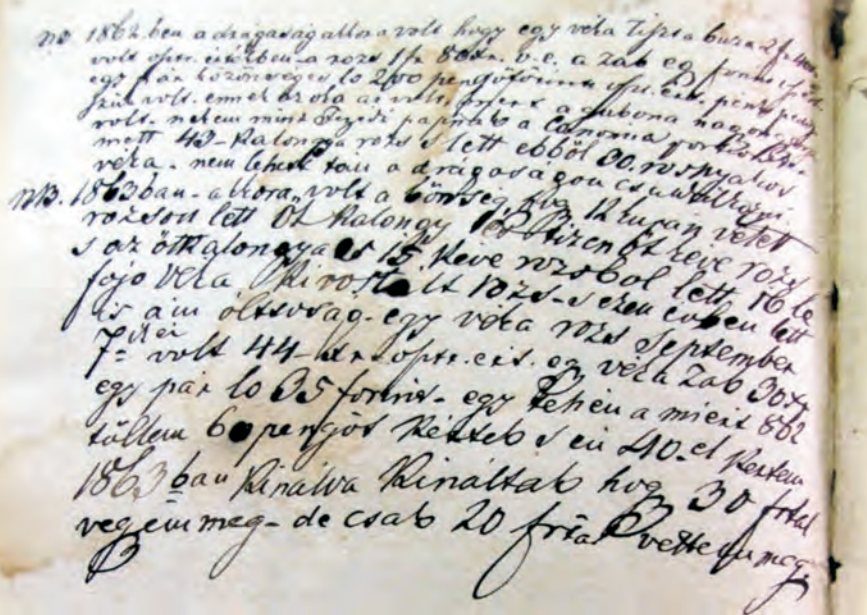 nB. 1862-ben a drágaság akkora volt hogy egy véka tiszta buza 2 f
volt ostr. ertekben a rozs 1 fr 80 xr. v. e. a zab eg forint
egy pár közönséges lo 200 pengöforint ostr. ert. penz
szük volt. ennek az oka az volt, mert a gubona nagyon
volt. nekem mint Szegedi papnak a canonica
mett 43 Kalongya rozs s lett ebböl 30. rosnyakos
véka. nem lehett tsu a drágaságon csudálkozni.
nB. 1863 ban akkora volt a böség, hog 12 kupán vetett
rozsom lett Öt Kalongy és tizenöt keve rozs
s az ött kalongya és 15 Keve rozsbol lett 16 le
fojo véka Kirostált rozs s ezen evben lett
is ám óltsoság egy véka rozs September
7= volt 44 xr ostr. ert. eg véka zab 30 xr
egy pár lo 35 forint egy tehén a miert 862
töllem 60 pengöt kértek s én 40-et kertem
1863 ban Kinalva Kinaltak hog 30 frtal
vegem meg - de csak 20 frtal vettem meg